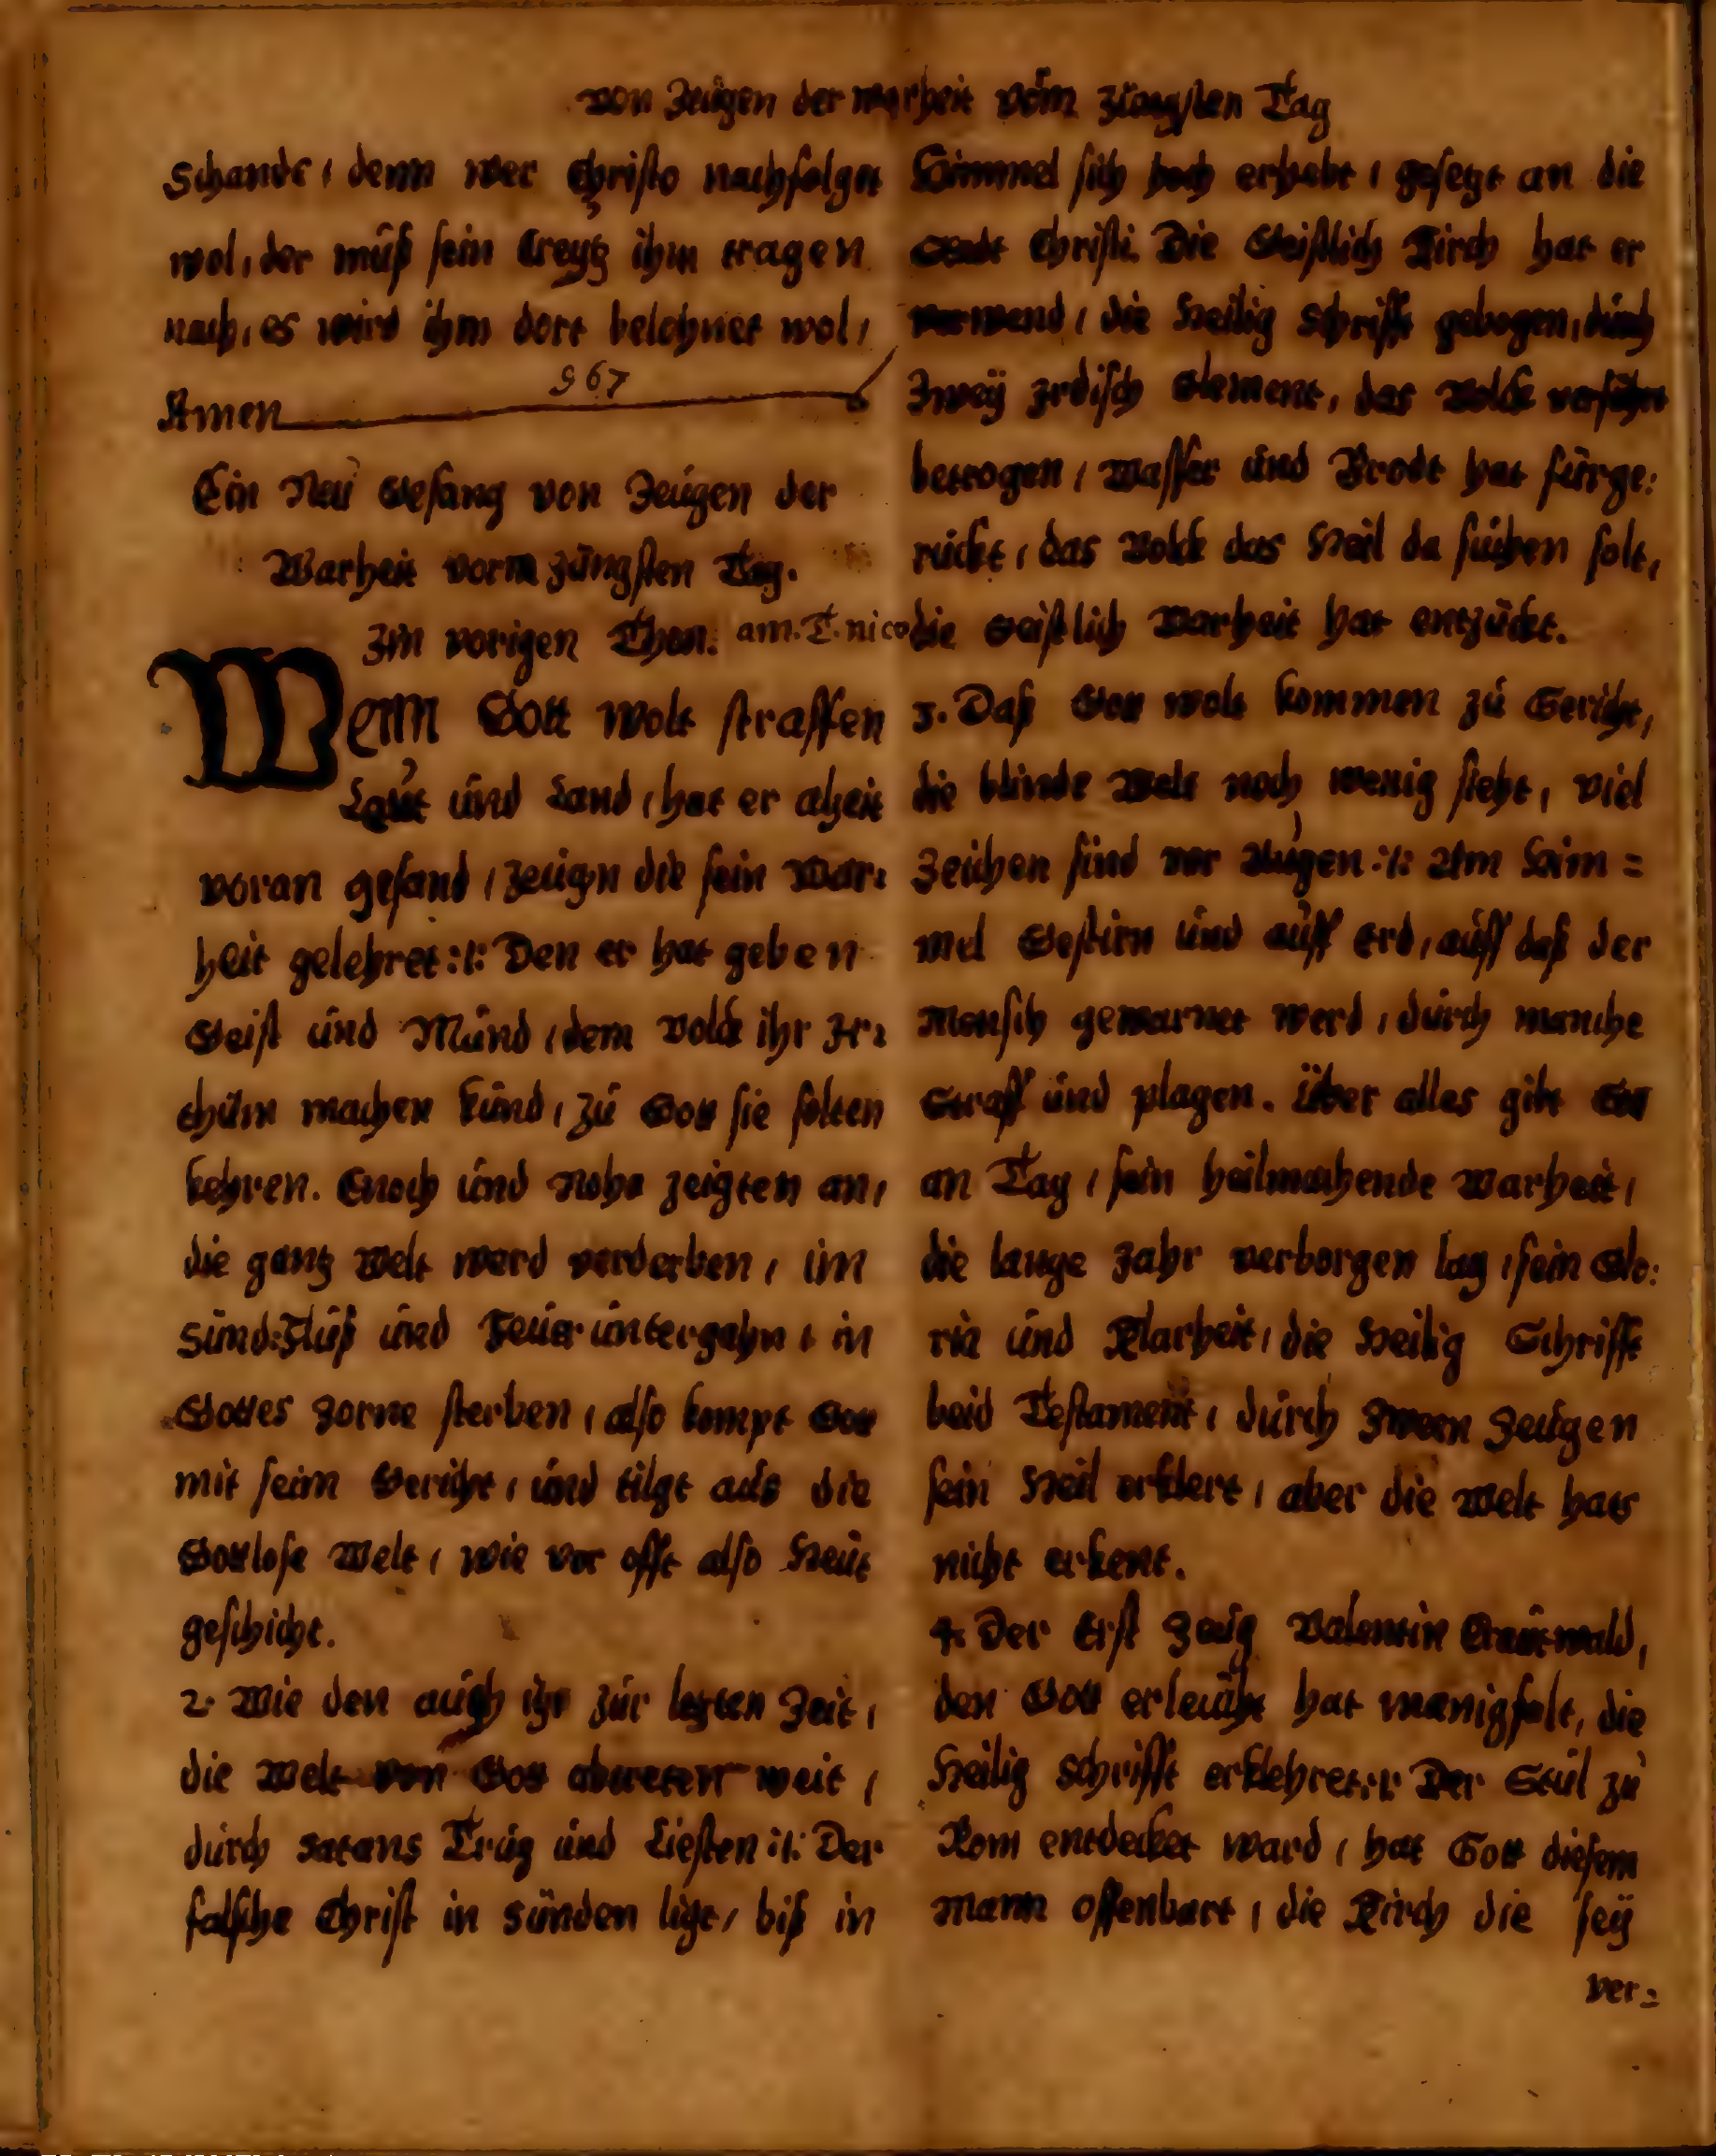 von Zeügen der warheit vom Jüngsten Tag
Schande, denn wer Christo nachfolget
wol, der müß sein Creytz ihm tragen
nach, es wird ihm dort belohnet wol,
967
Amen
Ein Neü Gesang von Zeügen der
Warheit vorm Jüngsten Tag.
Im vorigen Thon. am. T. nico
Wenn Gott wolt straffen
Leüt ünd Land, hat er alzeit
voran gesand, Zeügen die sein War:
heit gelehret :/: Den er hat geben
Geist ünd Münd, dem Volck ihr Ir:
thüm machen künd, zü Gott sie solten
kehren. Enoch ünd Nohe zeigten an,
die gantz Welt werd verderben, im
Sünd:Flüß ünd Feüer üntergehn, in
Gottes Zorne sterben, also kompt Gott
mit seim Gericht, ünd tilgt aus die
Gottlose Welt, wie vor offt also Heüt
geschicht.
2. Wie den aüch itzt zür letzten Zeit,
die Welt von Gott abtreten weit,
dürch Satans Trüg ünd Liesten :/: Der
falsche Christ in Sünden ligt, biß in
Himmel sich hoch erhebt, gesetzt an die
Stadt Christi. Die Geistlich Kirch hat er
verwend, die Heilig Schrifft gebogen, dürch
Zwey Irdisch Element, das Volck verführt
betrogen, Wasser ünd Brodt hat fürge:
rückt, das Volck das Heil da süchen solt,
die Geistlich Warheit hat entzückt.
3. Daß Gott wolt kommen zü Gericht,
die blinde Welt noch wenig sieht, viel
Zeichen sind vor Aügen :/: Am Him=
mel Gestirn ünd aüff Erd, aüff daß der
Mensch gewarnet werd, dürch manche
Straff ünd plagen. Über alles gibt Gott
an Tag, sein heilmachende Warheit,
die lange Jahr verborgen lag, sein Glo:
ria ünd Klarheit, die Heilig Schrifft
beid Testament, dürch Zween Zeügen
sein Heil erklert, aber die Welt hats
nicht erkent.
4. Der Erst Zeüg Valentin Craütwald,
den Gott erleücht hat manigfalt, die
Heilig Schrifft erklehret :/: Der Stül zü
Rom entdecket ward, hat Gott diesem
Mann offenbart, die Kirch die sey
ver=